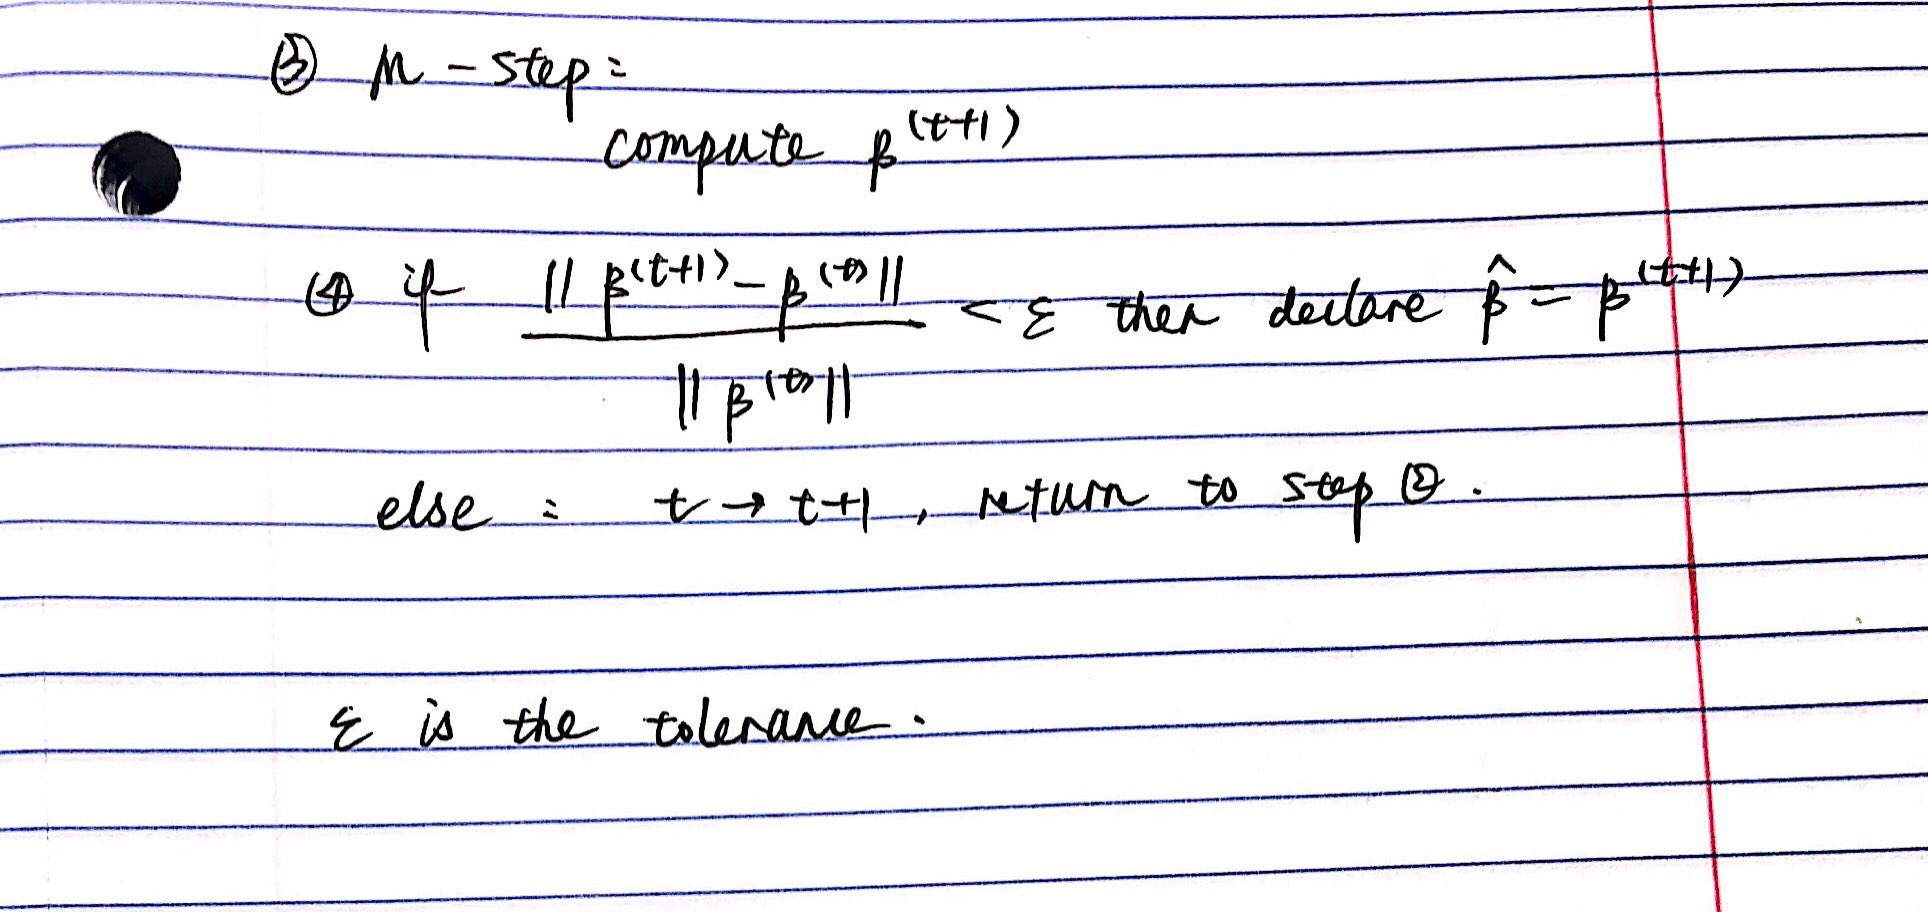 ③ M-step:
compute β^(t+1)
④ if ||β^(t+1) - β^(t)|| / ||β^(t)|| < ε then declare β̂ = β^(t+1)
else : t → t+1, return to step ②.
ε is the tolerance.